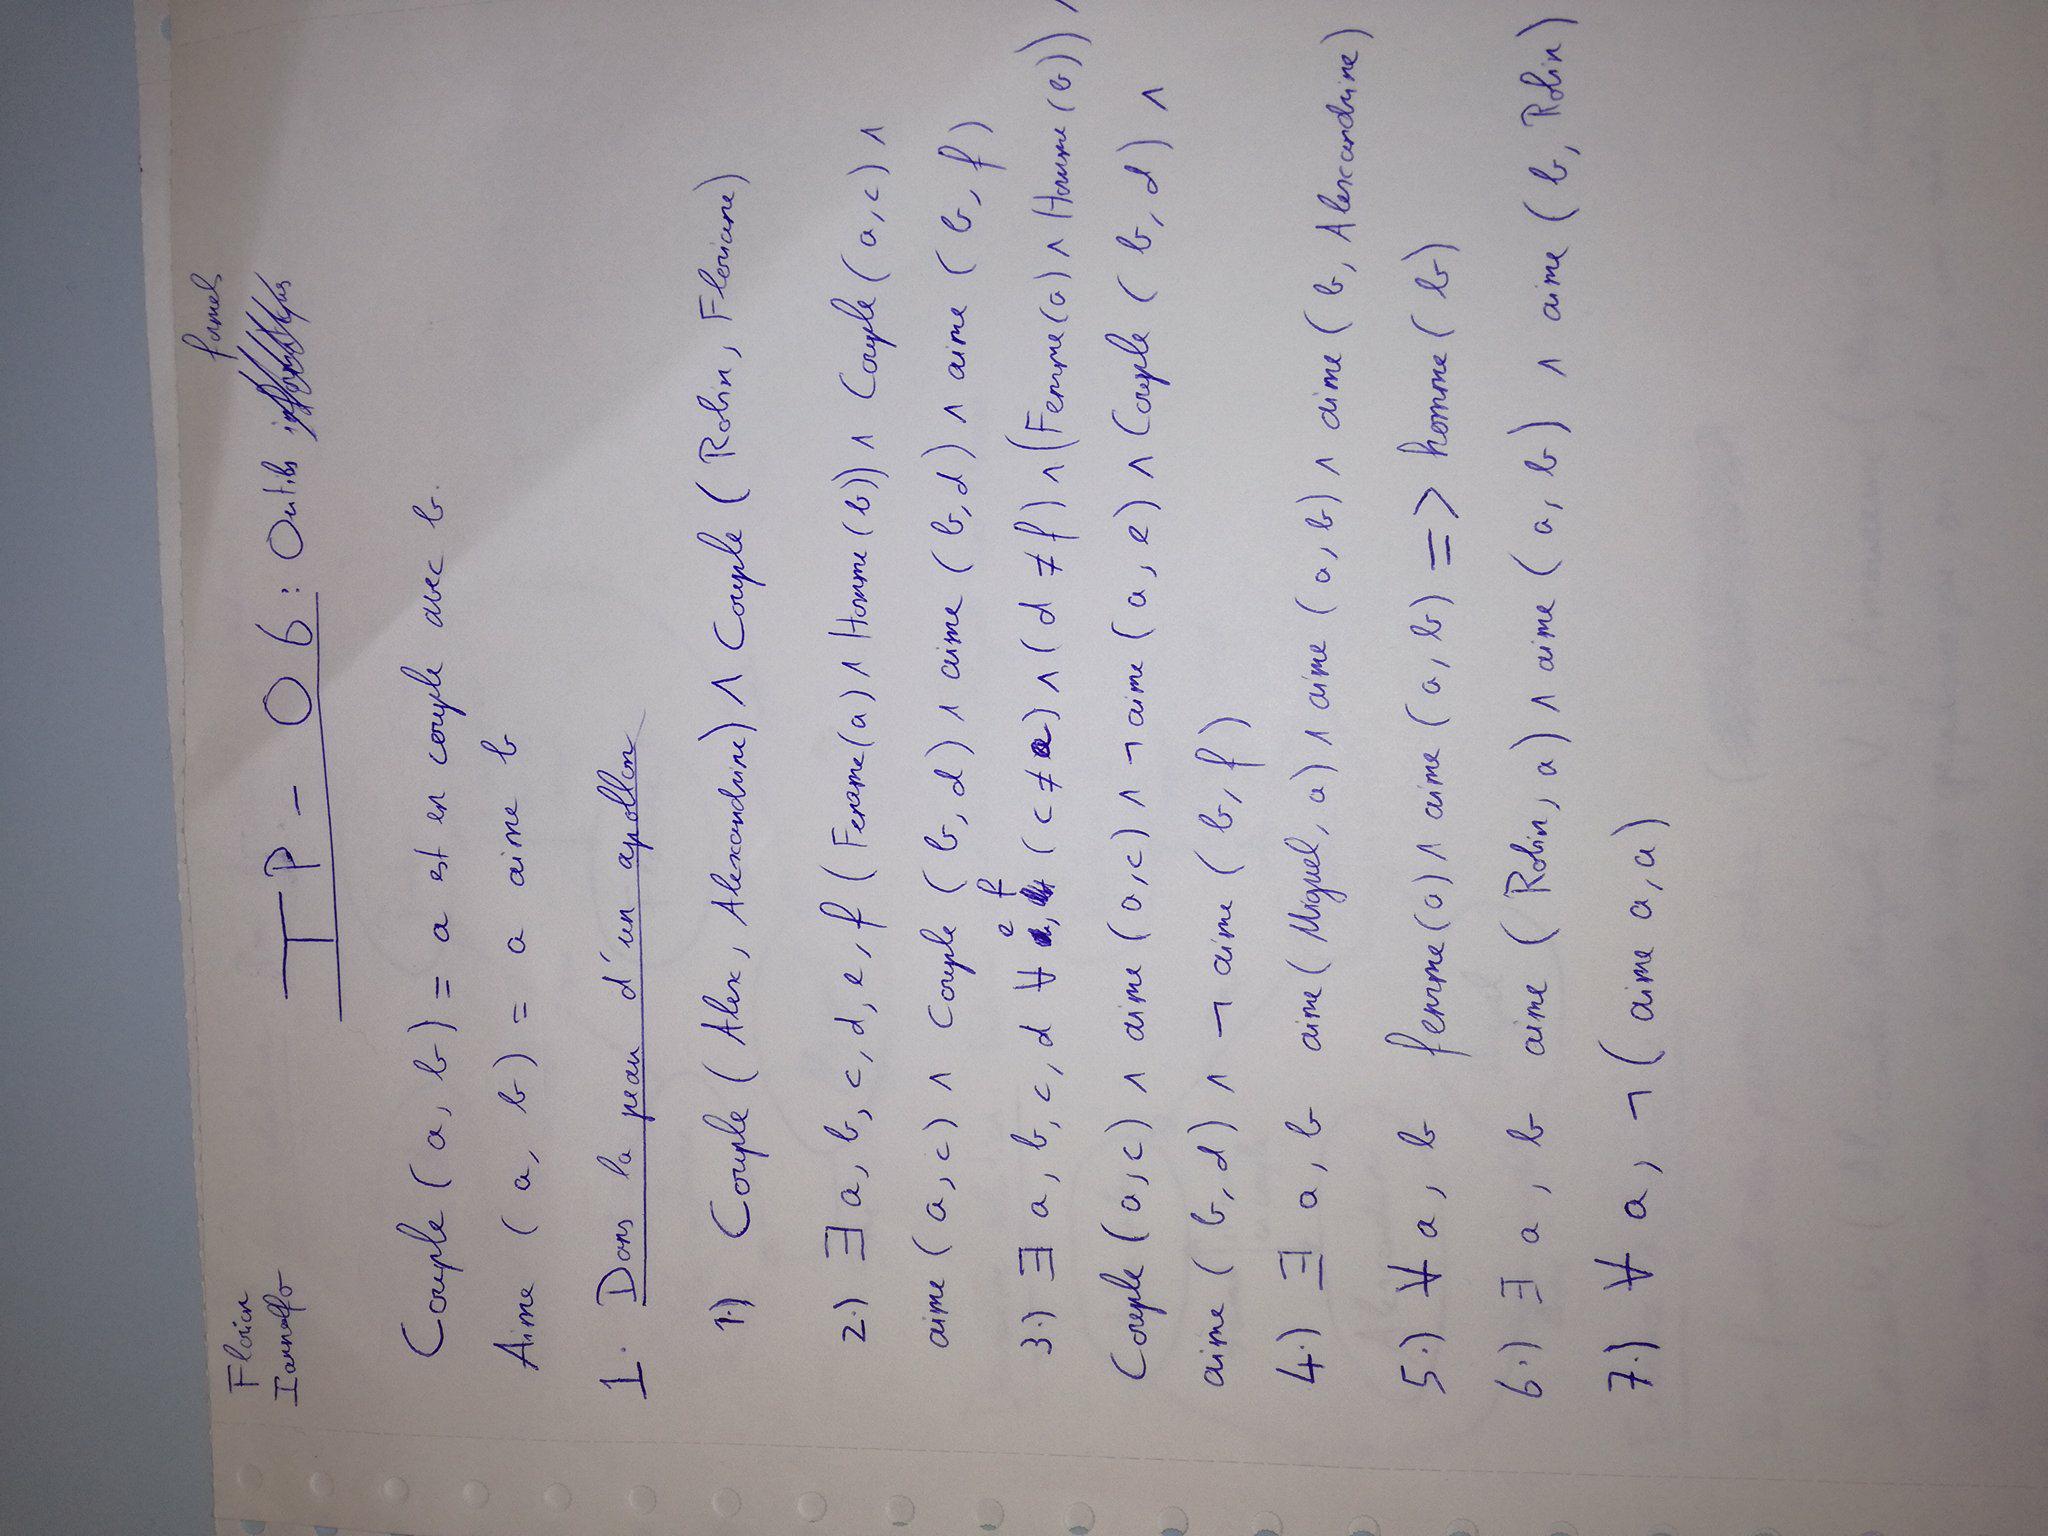 Florian
Iannelfo
formels
TP - 06 : Outils
Couple (a, b) = a est en couple avec b.
Aime (a, b) = a aime b
1. Dans la peau d'un apollon
1.) Couple (Alex, Alexandrine) ∧ Couple (Robin, Floriane)
2.) ∃ a, b, c, d, e, f (Femme(a) ∧ Homme(b)) ∧ Couple (a, c) ∧
aime (a, c) ∧ Couple (b, d) ∧ aime (b, d) ∧ aime (b, f)
3.) ∃ a, b, c, d ∀ e, f (c ≠ e) ∧ (d ≠ f) ∧ (Femme(a) ∧ Homme(b)) ∧
Couple (a, c) ∧ aime (a, c) ∧ ¬ aime (a, e) ∧ Couple (b, d) ∧
aime (b, d) ∧ ¬ aime (b, f)
4.) ∃ a, b aime (Miguel, a) ∧ aime (a, b) ∧ aime (b, Alexandrine)
5.) ∀ a, b femme(a) ∧ aime (a, b) => homme (b)
6.) ∃ a, b aime (Robin, a) ∧ aime (a, b) ∧ aime (b, Robin)
7.) ∀ a, ¬ (aime a, a)